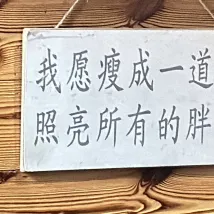 我愿瘦成一道
照亮所有的胖